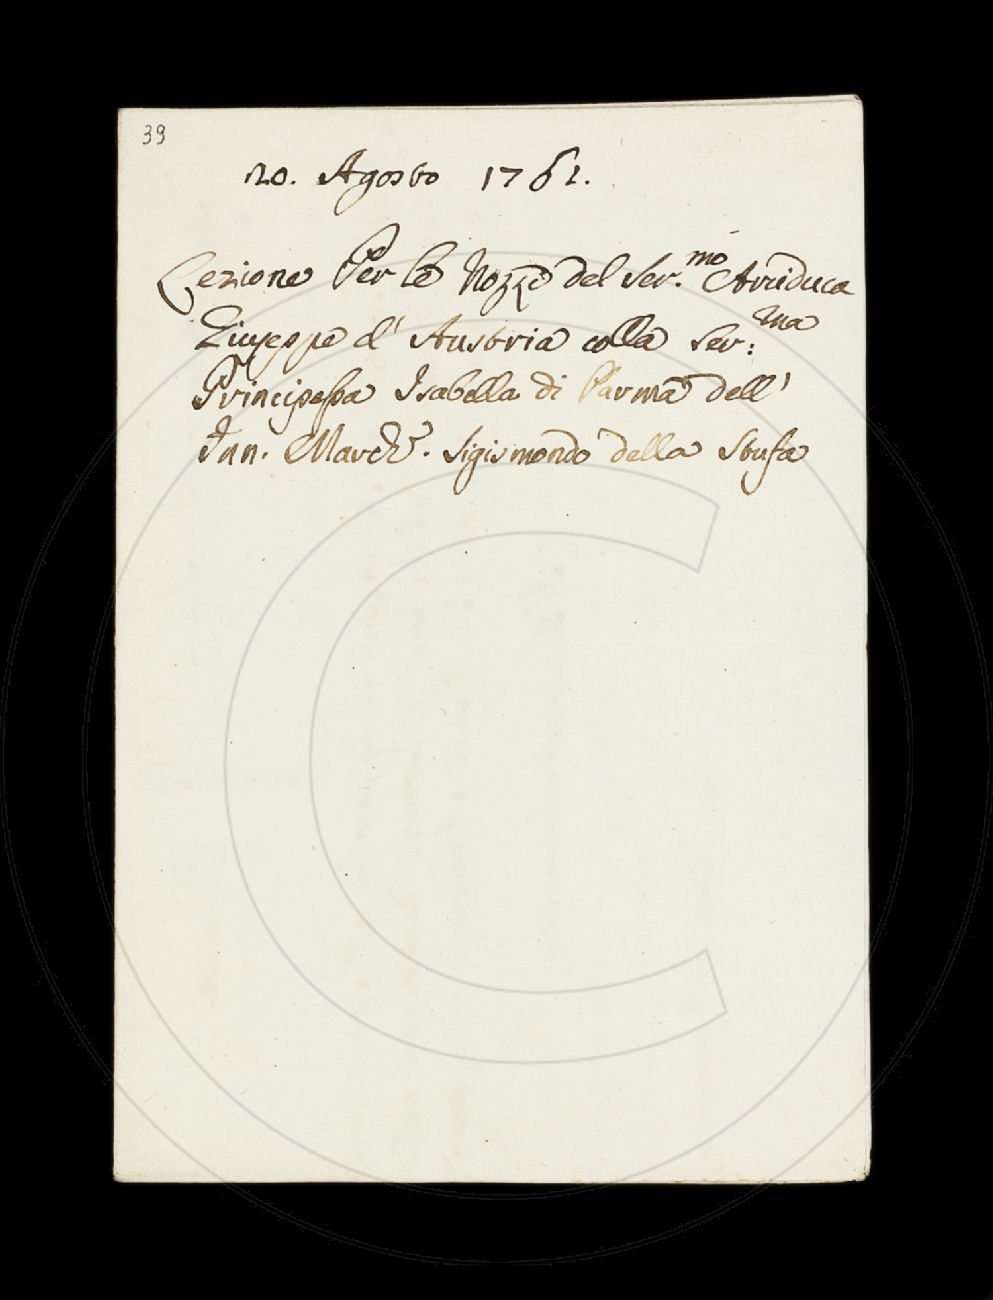 39
20. Agosto 1761.
Lezione Per le Nozze del Ser.mo Arciduca
Giuseppe d' Austria colla Ser:ma
Principessa Isabella di Parma dell'
Inn. March. Sigismondo della Stufa